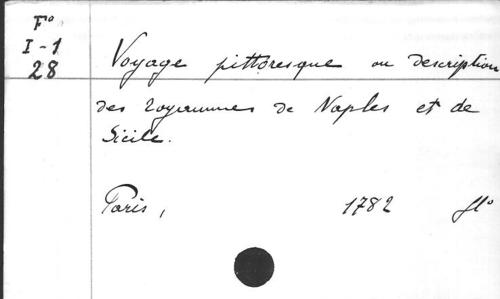 F°
I-1
28
Voyage pittoresque ou description
des royaumes de Naples et de
Sicile.
Paris, 1782 fl°